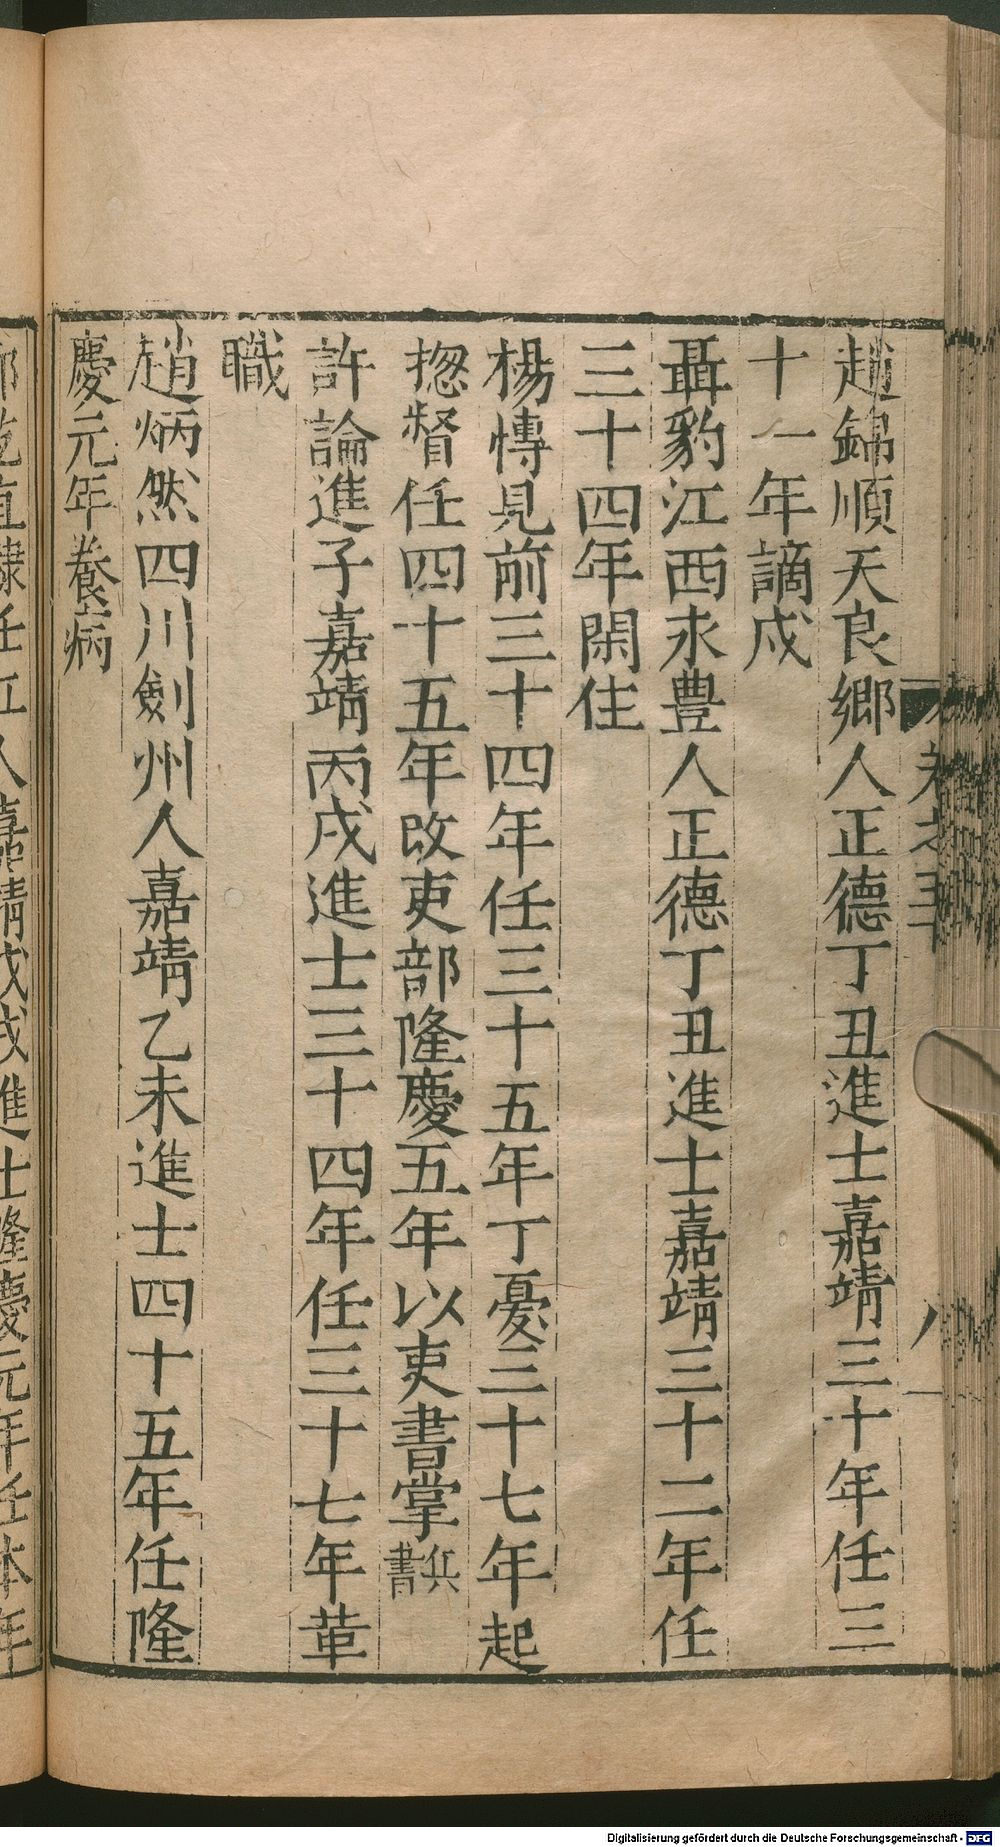 趙錦順天良鄉人正德丁丑進士嘉靖三十年任三
十一年謫戍
聶豹江西永豊人正德丁丑進士嘉靖三十二年任
三十四年閑住
楊慱見前三十四年任三十五年丁憂三十七年起
揔督任四十五年改吏部隆慶五年以吏書掌兵書
許論進子嘉靖丙戌進士三十四年任三十七年革
職
趙炳然四川劍州人嘉靖乙未進士四十五年任隆
慶元年養病
直隸任丘人嘉靖戊戌進士隆慶元年任本年
Digitalisierung gefördert durch die Deutsche Forschungsgemeinschaft - DFG